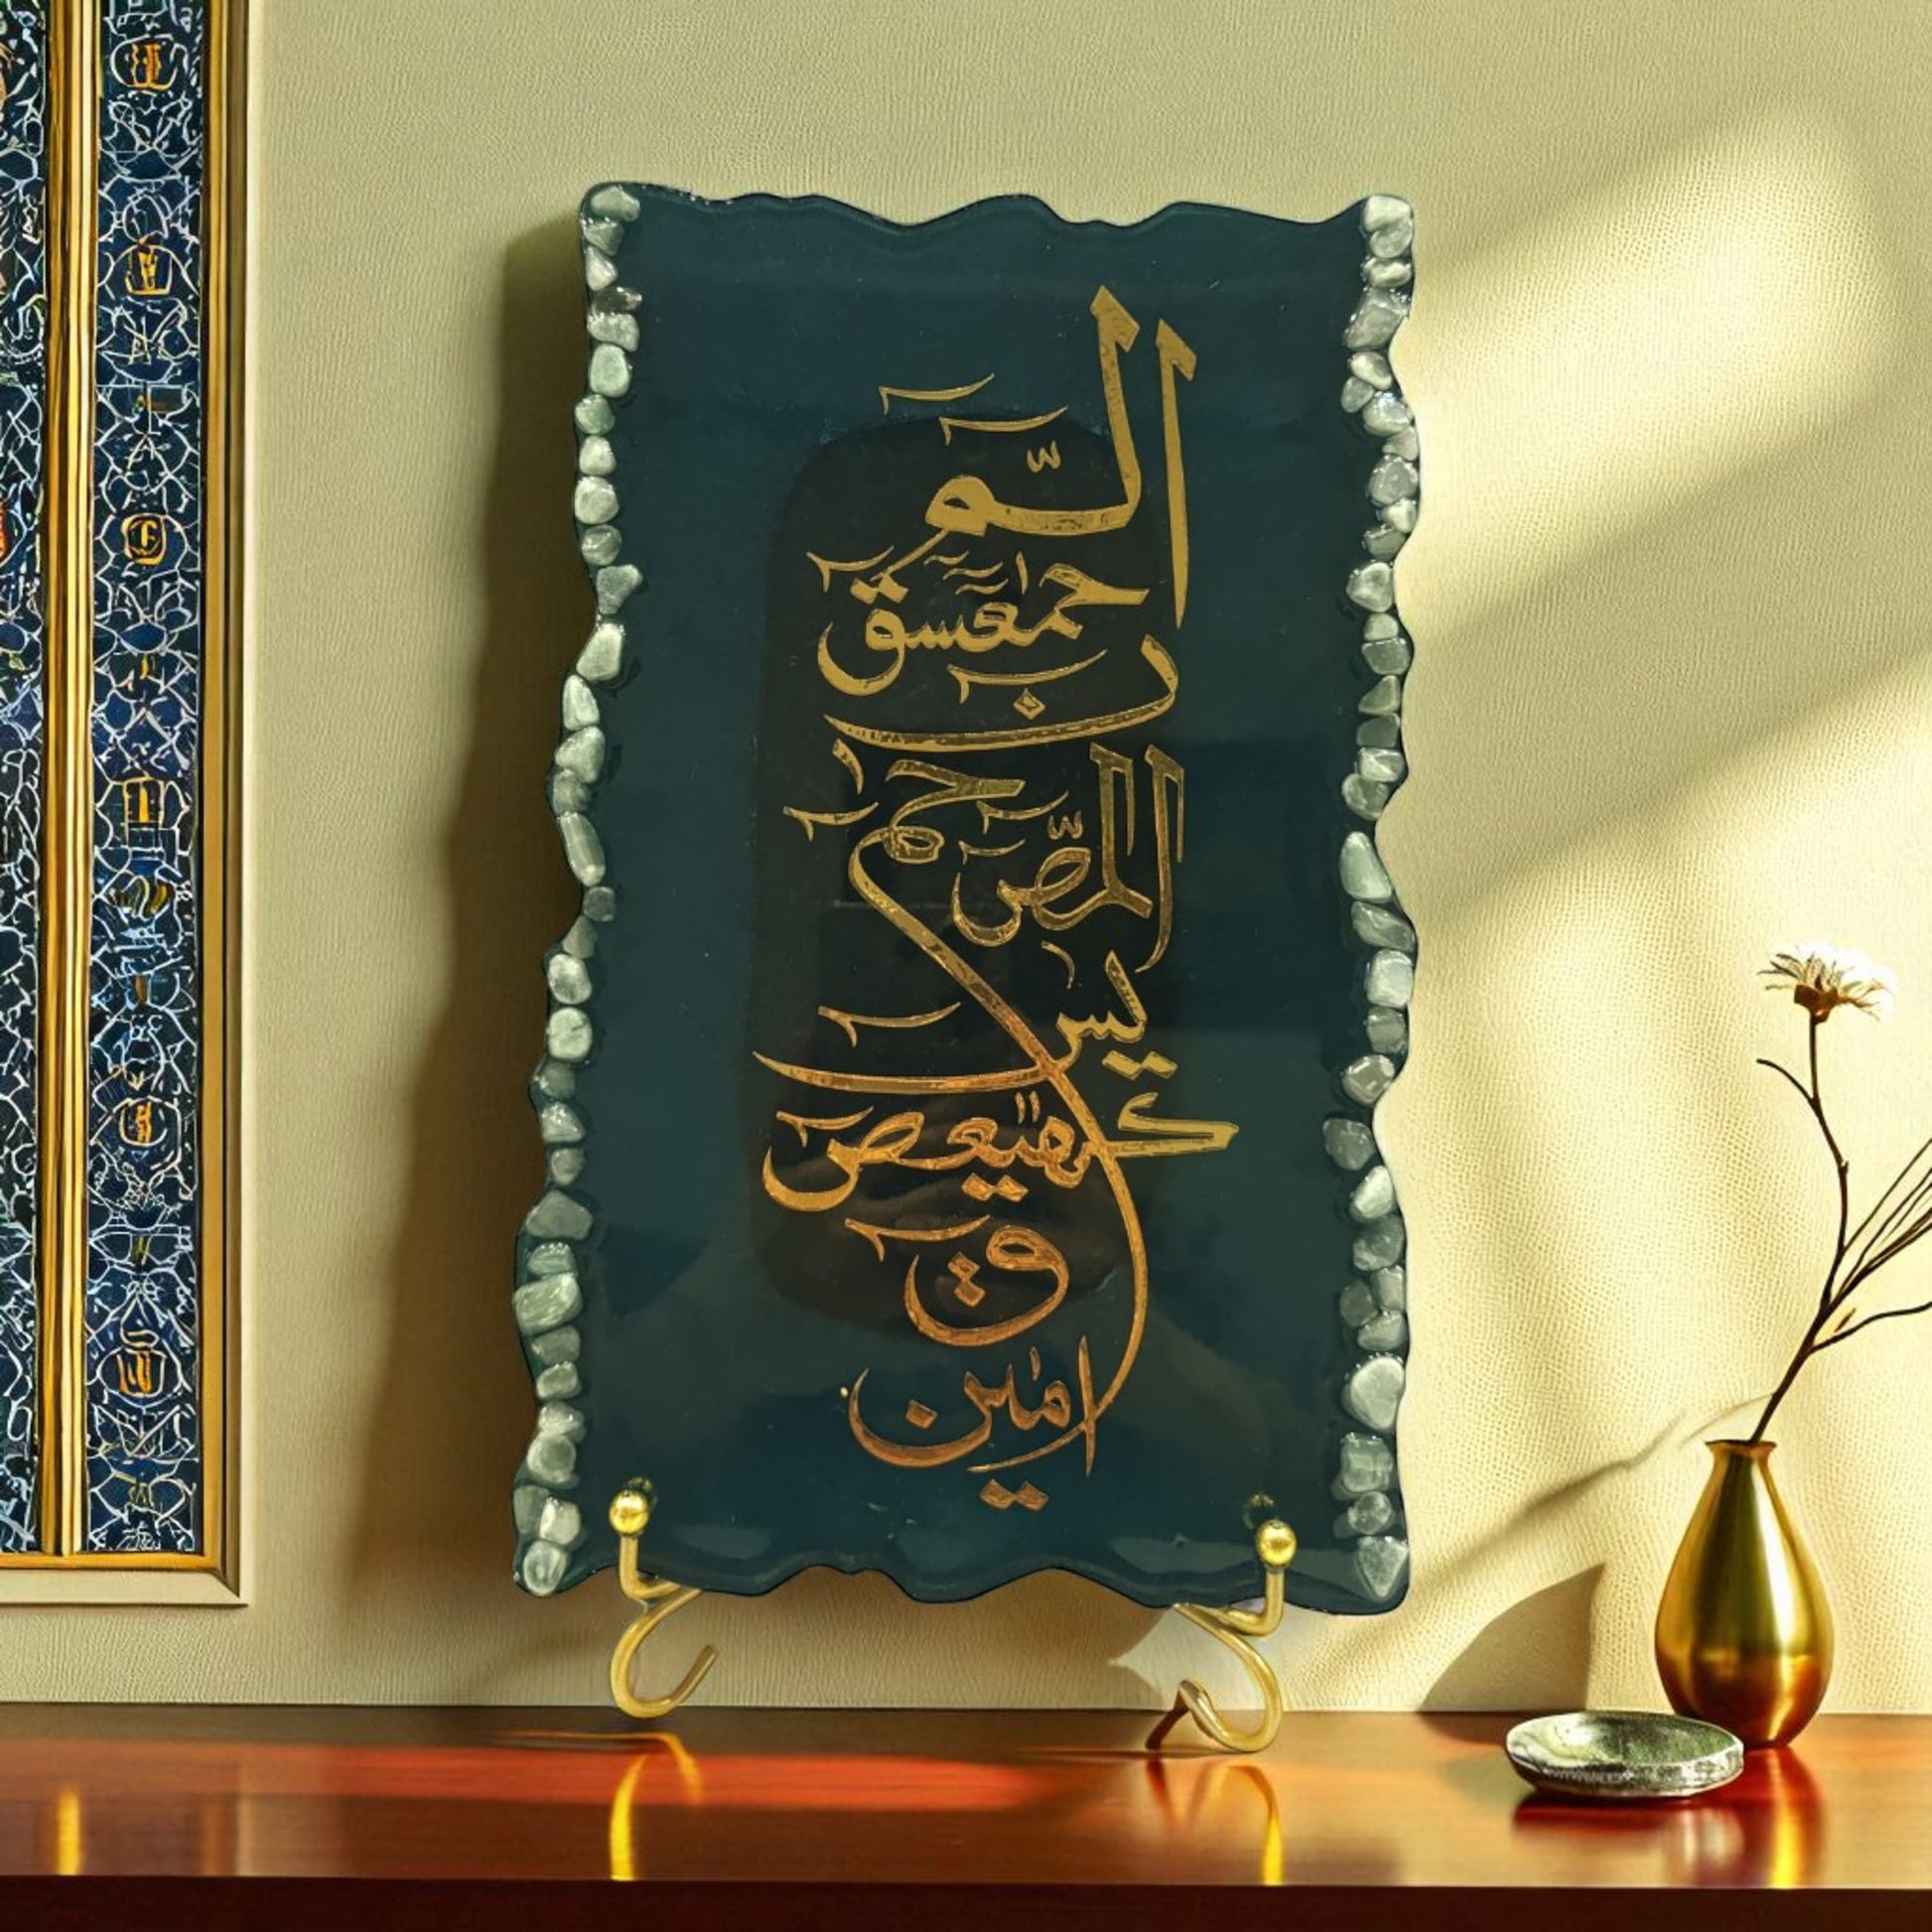 الٓمّٓ
حٰمٓعٓسٓقٓ
نٓ
الٓمّٓصٓ حٰمٓ
يٰسٓ
كهيعصٓ
قٓ
امين